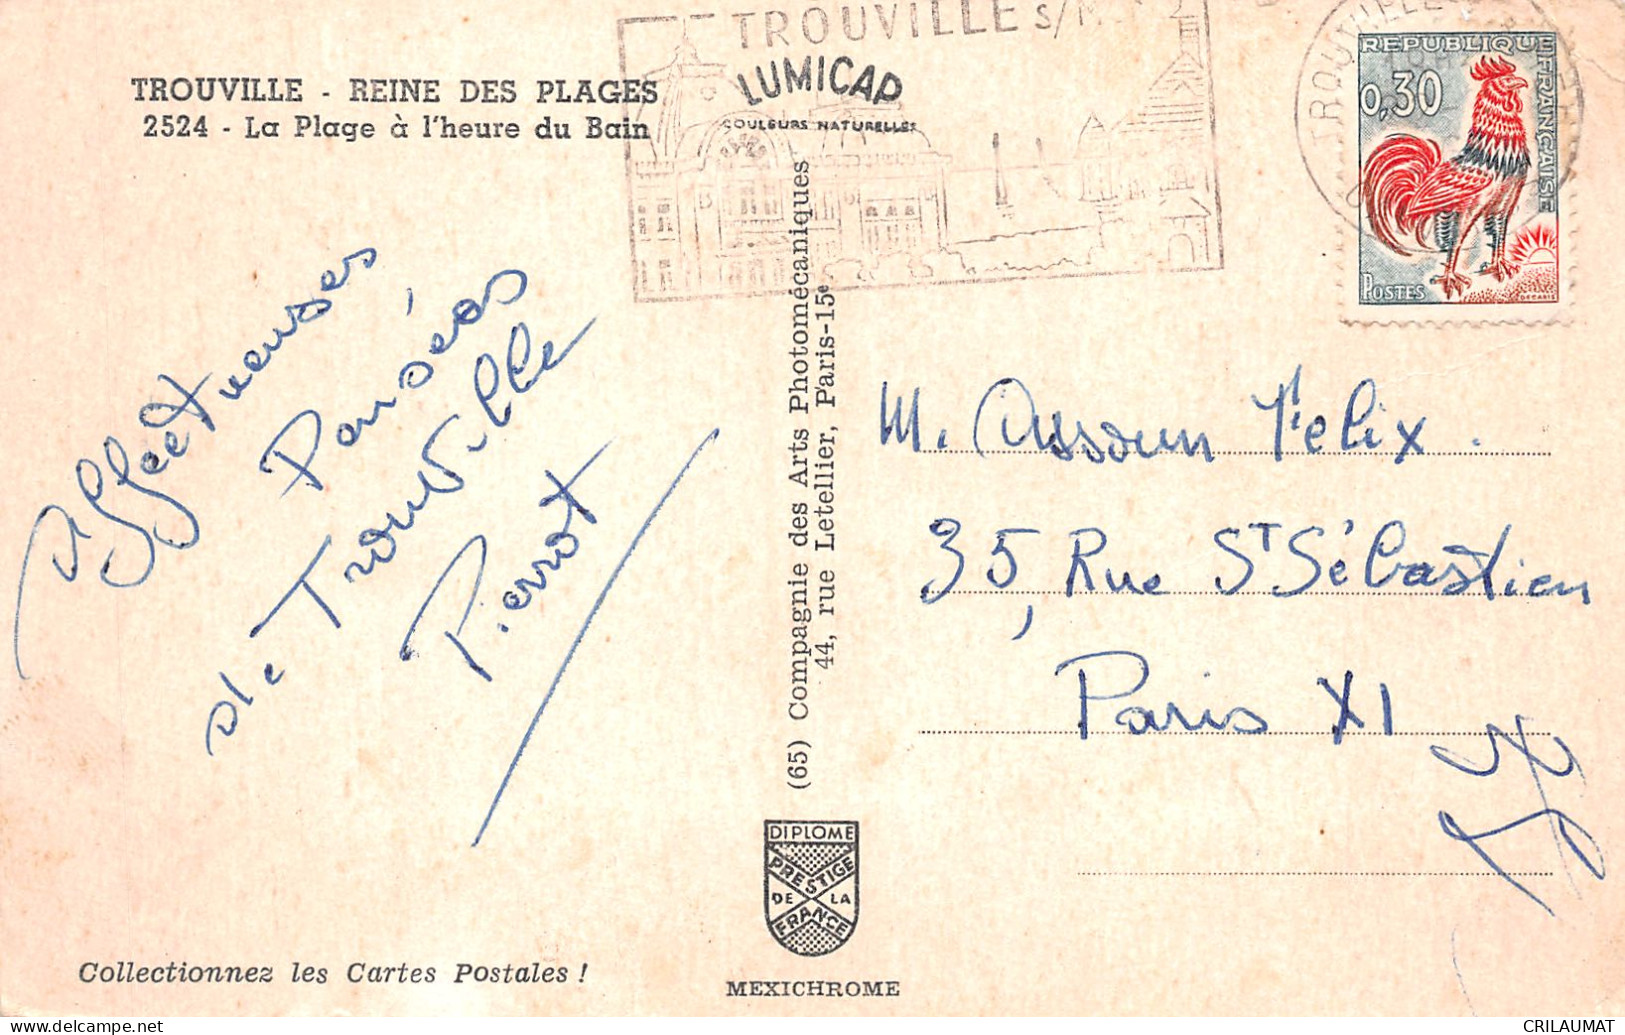 TROUVILLE - REINE DES PLAGES
2524 - La Plage à l'heure du Bain
TROUVILLE S/M
LUMICAP
COULEURS NATURELLES
REPUBLIQUE FRANÇAISE
0,30
POSTES
DECARIS
TROUVILLE
Affectueuses
Pensées
de Trouville
Pierrot
(65) Compagnie des Arts Photomécaniques
44, rue Letellier, Paris-15e
M. Assoun Felix.
35, Rue St Sébastien
Paris XI
DIPLOME
PRESTIGE
DE LA
FRANCE
MEXICHROME
Collectionnez les Cartes Postales !
CRILAUMAT